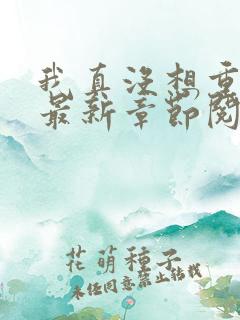 我真没想重
最新章節閱
花萌種子
未经同意禁止转载